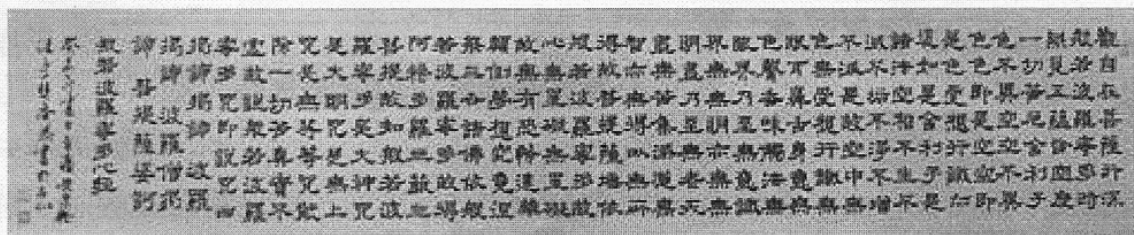 觀自在菩薩行深
般若波羅蜜多時
照見五蘊皆空度
一切苦厄舍利子
色不異空空不異
色色即是空空即
是色受想行識亦
復如是舍利子是
諸法空相不生不
滅不垢不淨不增
不減是故空中無
色無受想行識無
眼耳鼻舌身意無
色聲香味觸法無
眼界乃至無意識
界無無明亦無無
明盡乃至無老死
盡無苦集滅道無
智亦無得以無所
得故菩提薩埵依
般若波羅蜜多故
心無罣礙無罣礙
故無有恐怖遠離
顛倒夢想究竟涅
槃三世諸佛依般
若波羅蜜多故得
阿耨多羅三藐三
菩提故知般若波
羅蜜多是大神咒
是大明咒是無上
咒是無等等咒能
除一切苦真實不
虛故說般若波羅
蜜多咒即說咒曰
揭諦揭諦 波羅
揭諦 波羅僧揭
諦 菩提薩婆訶
般若波羅蜜多心經